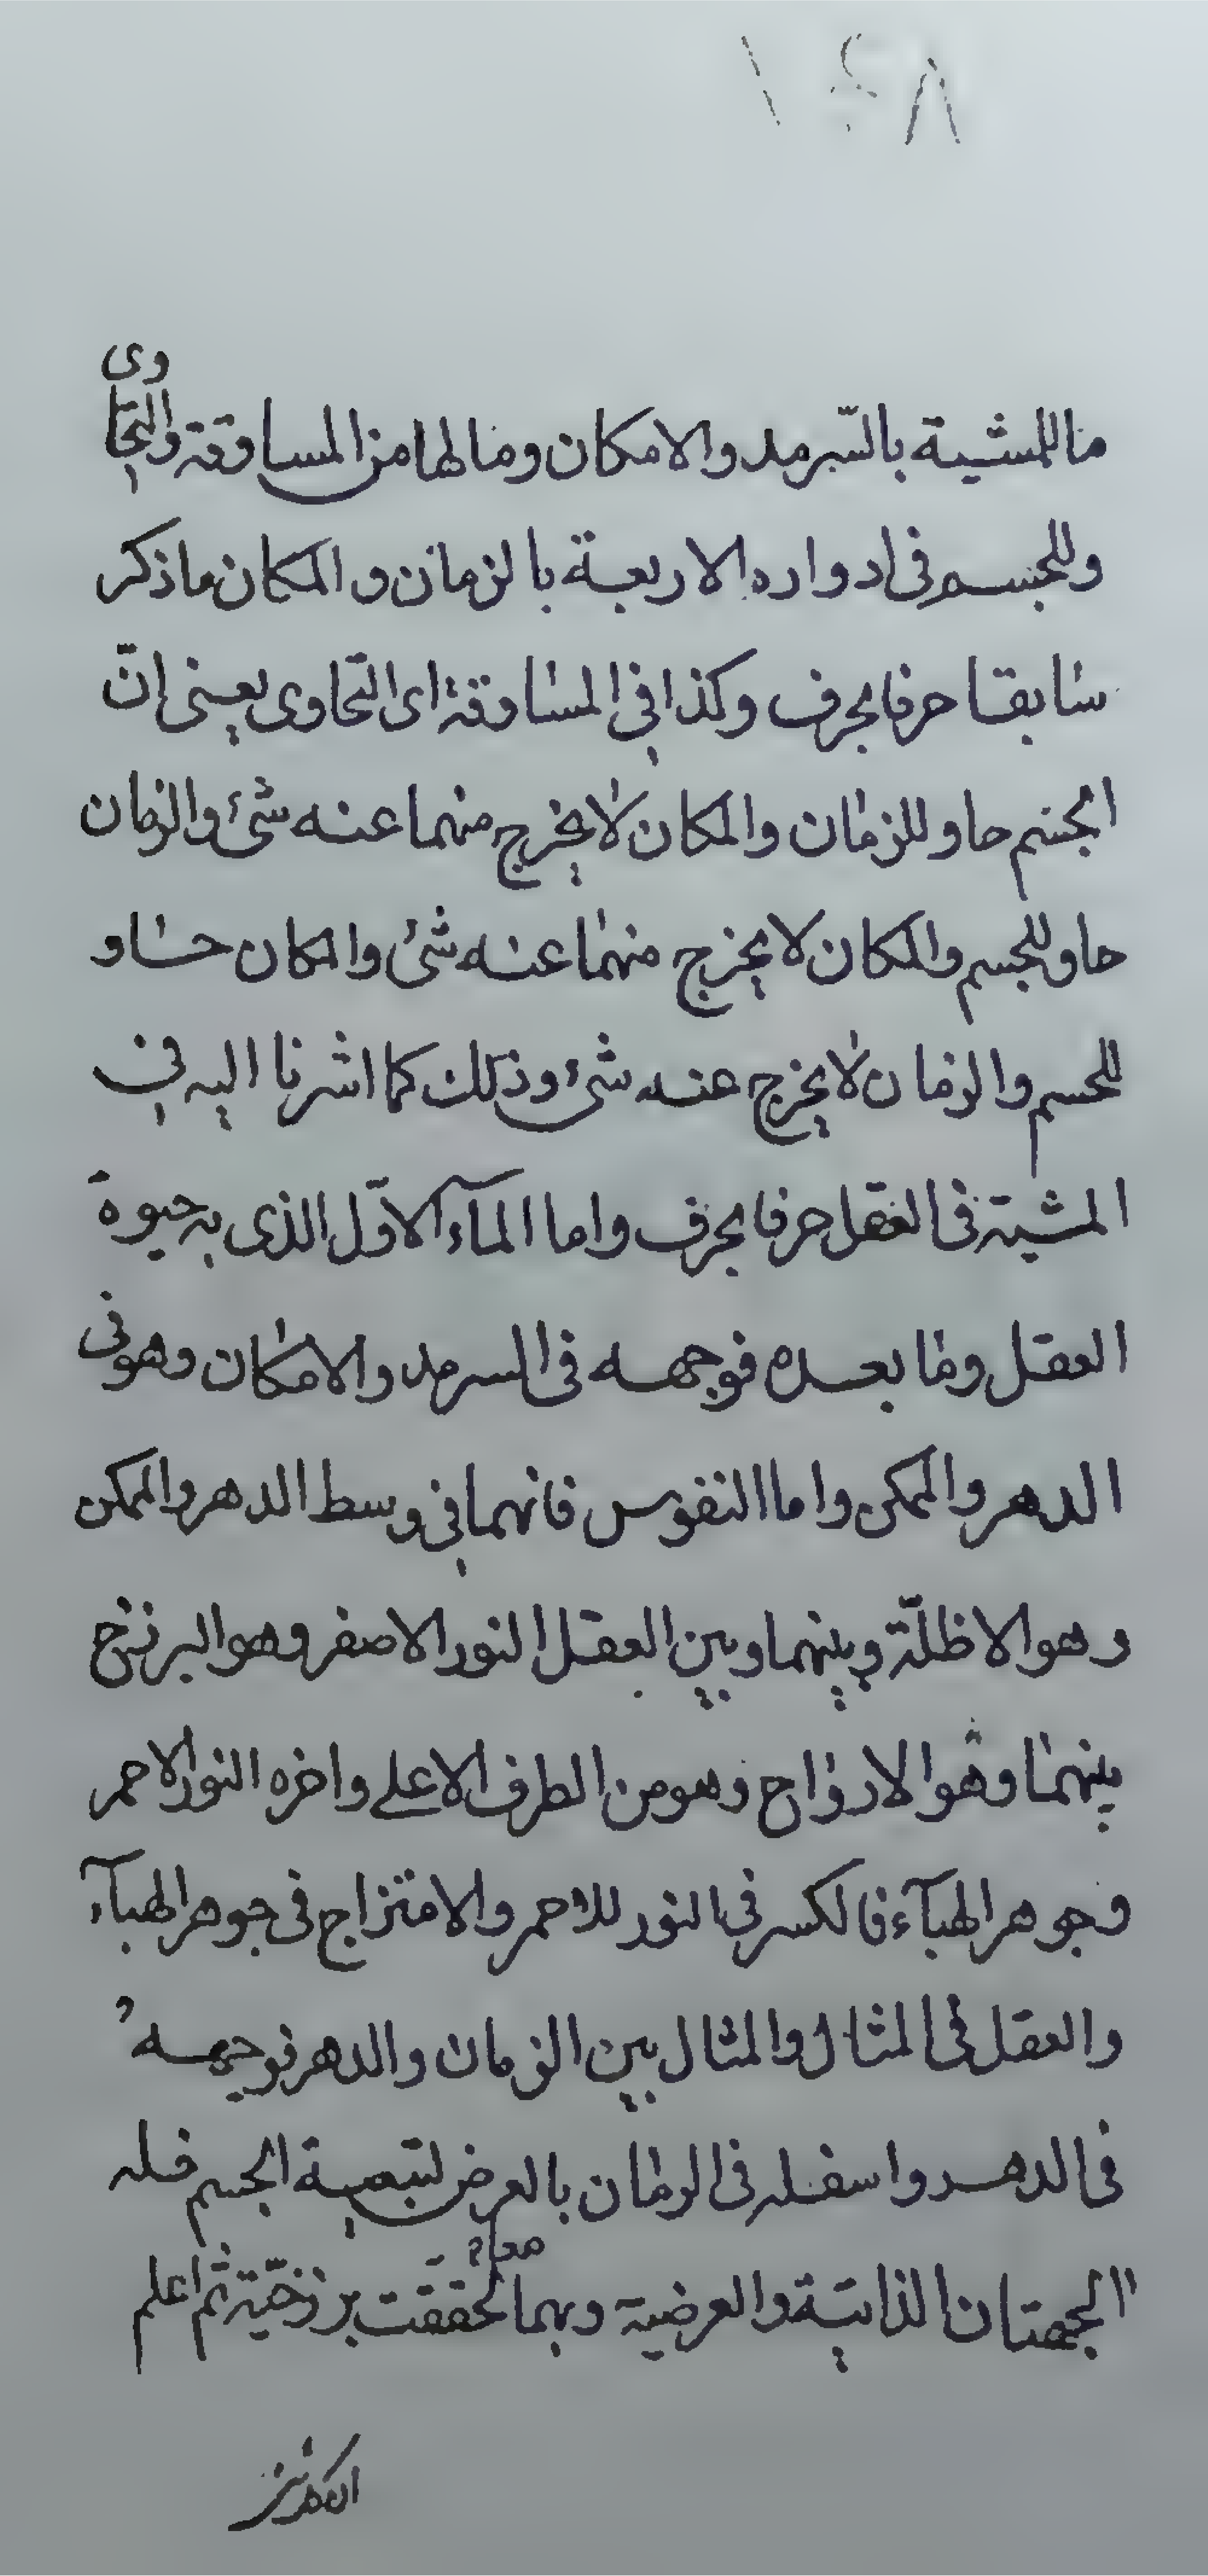 ما للمشية بالسّرمد والامكان وما لها من المساوقة والتحاوى
وللجسم فى ادواره الاربعة بالزمان و المكان ما ذكر
سابقا حرفا بحرف وكذا في المساوقة اى التّحاوى يعنى انّ
الجسم حاو للزمان والمكان لا يخرج منهما عنه شئ والزمان
حاو للجسم والمكان لا يخرج منهما عنه شئ والمكان حاو
للجسم والزمان لا يخرج عنه شئ وذلك كما اشرنا اليه في
المشية فى العقل حرفا بحرف واما المآء الاوّل الذى به حيوة
العقل وما بعده فوجهه فى السرمد والامكان وهو فى
الدهر والممكن واما النفوس فانهما في وسط الدهر والممكن
وهو الاظلّة وبينهما وبين العقل النور الاصفر وهو البرزخ
بينهما وهو الارواح وهو من الطرف الاعلى واخره النور الاحمر
وجوهر الهبآء فالكسر في النور للاحمر والامتزاج فى جوهر الهبآء
والعقل فى المثال والمثال بين الزمان والدهر فوجهه
فى الدهر واسفله فى الزمان بالعرض لتبعية الجسم فله
الجهتان الذاتية والعرضية وبهما تحققت برزخيّته ثم اعلم